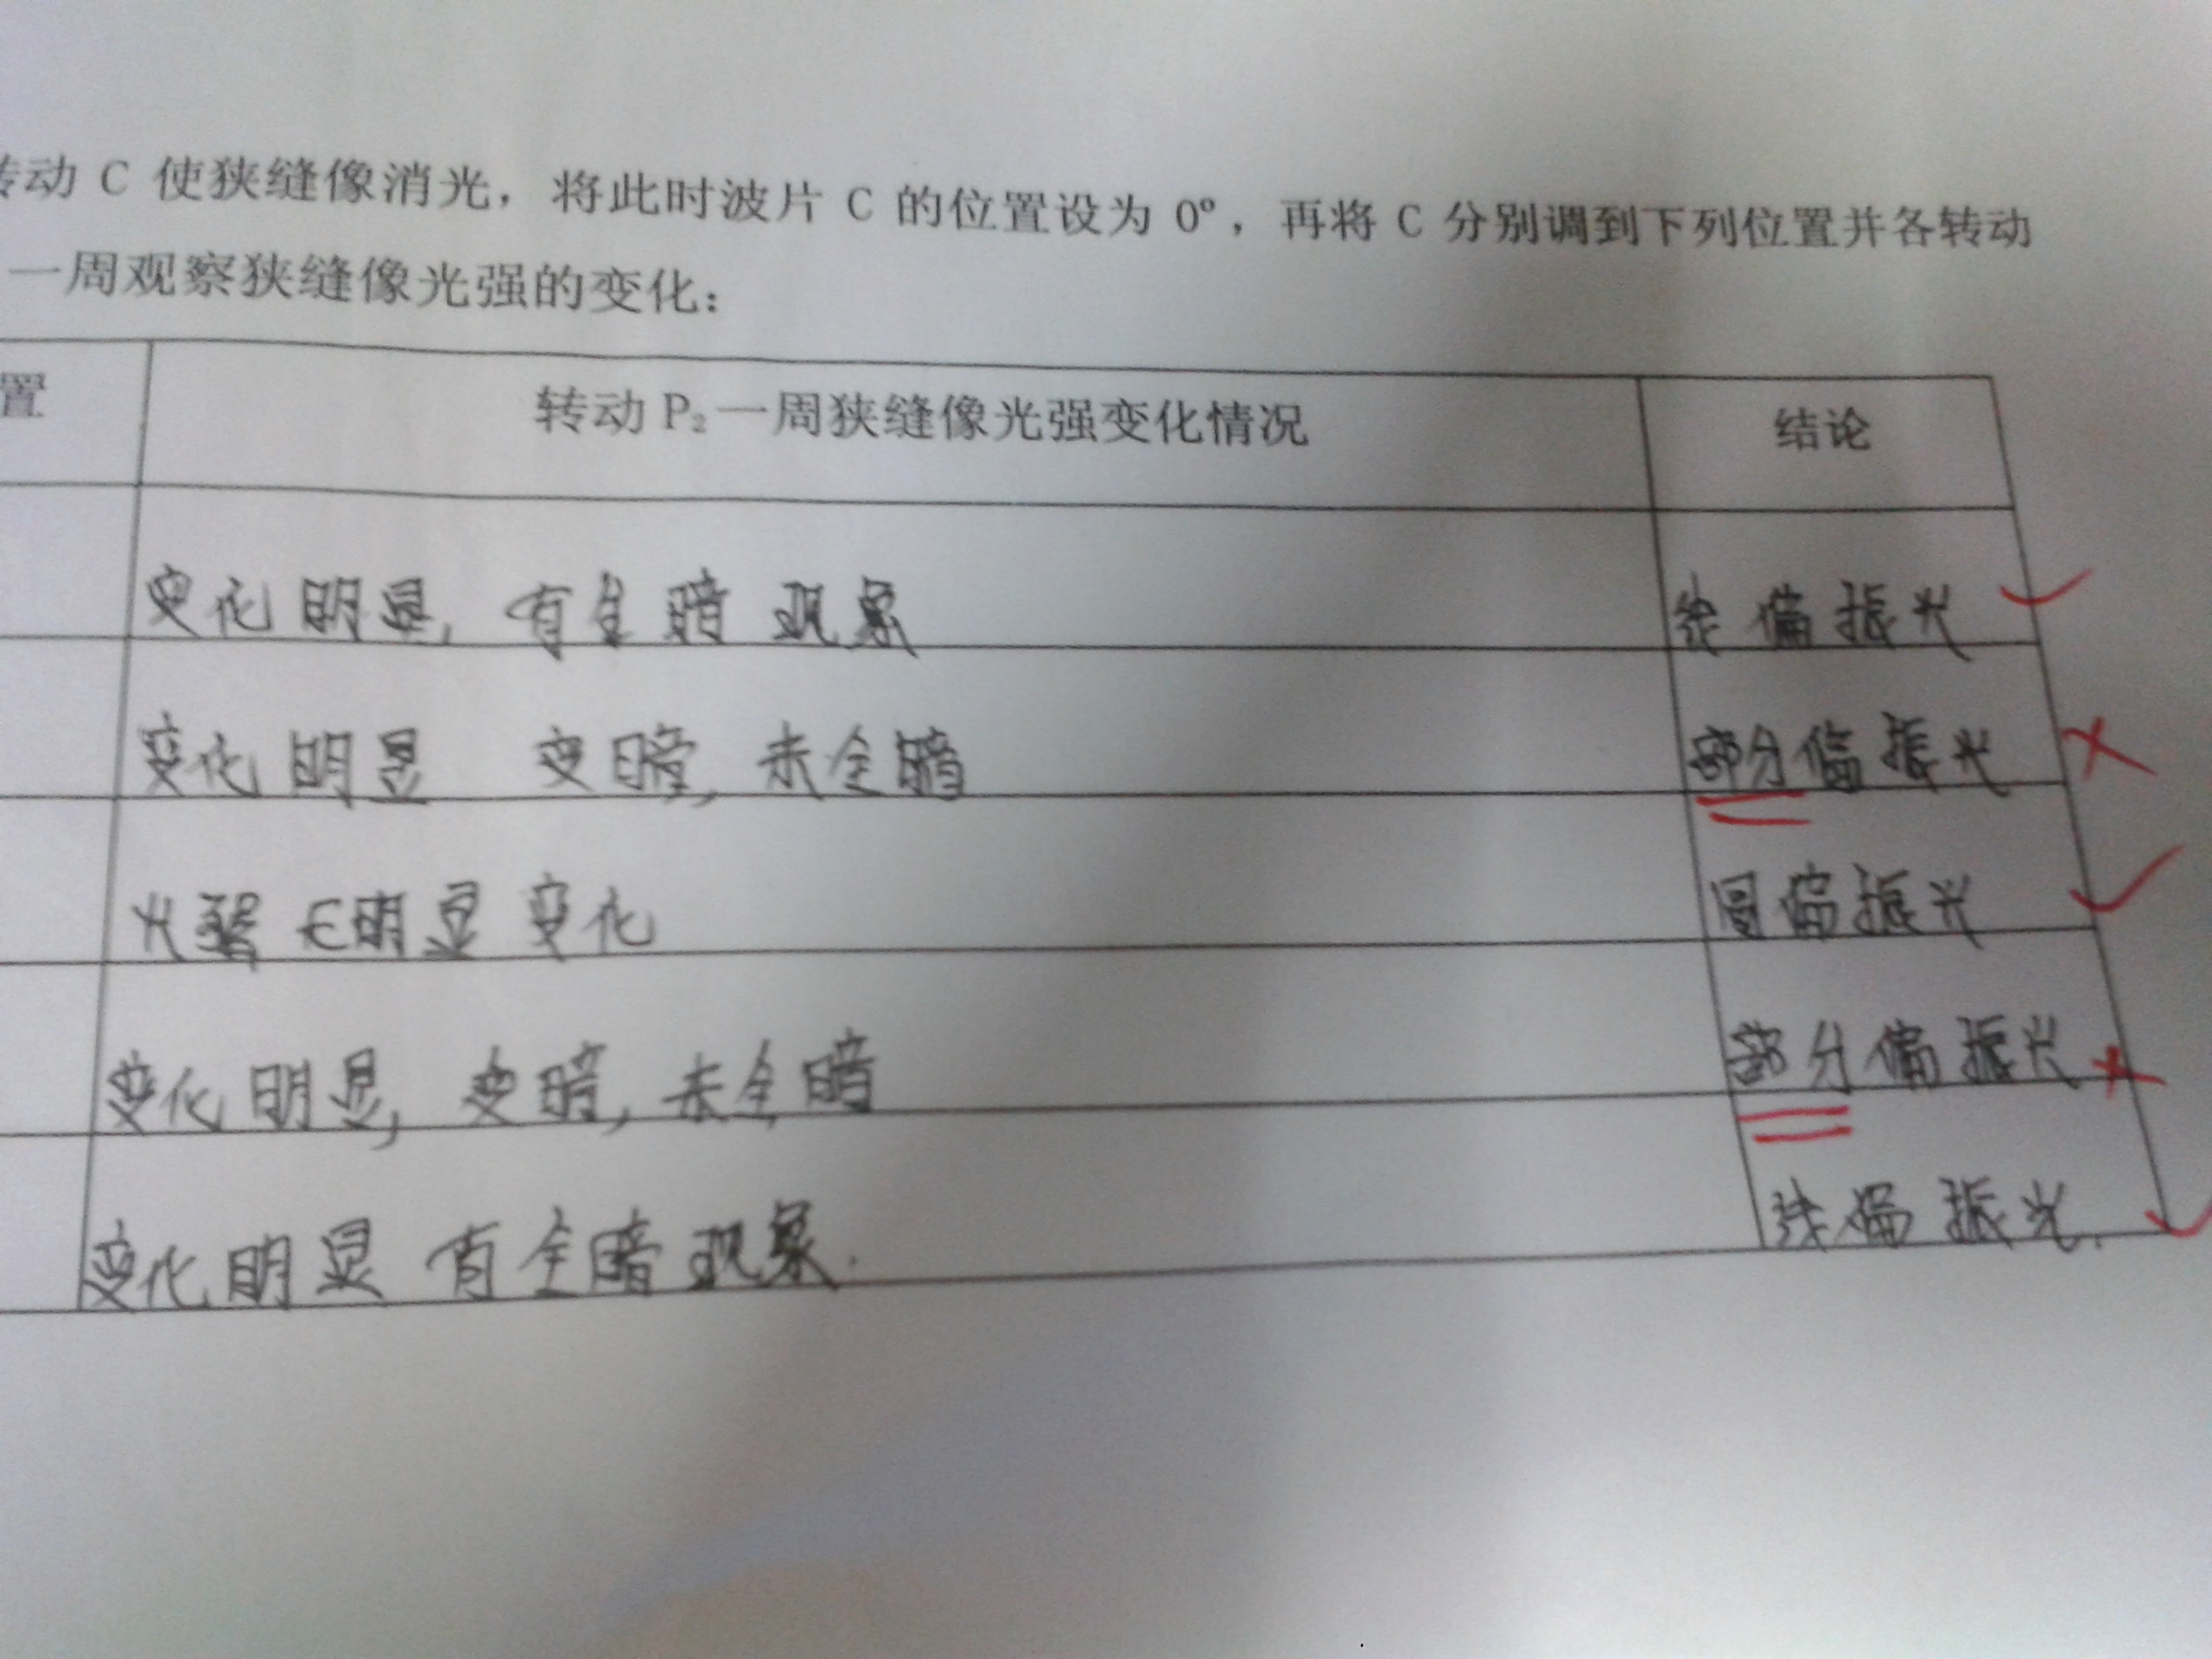 动 C 使狭缝像消光，将此时波片 C 的位置设为 0º，再将 C 分别调到下列位置并各转动
一周观察狭缝像光强的变化：
置 转动 P₂ 一周狭缝像光强变化情况 结论
变化明显，有全暗现象 线偏振光
变化明显 变暗，未全暗 部分偏振光
光强无明显变化 圆偏振光
变化明显，变暗，未全暗 部分偏振光
变化明显 有全暗现象. 线偏振光.